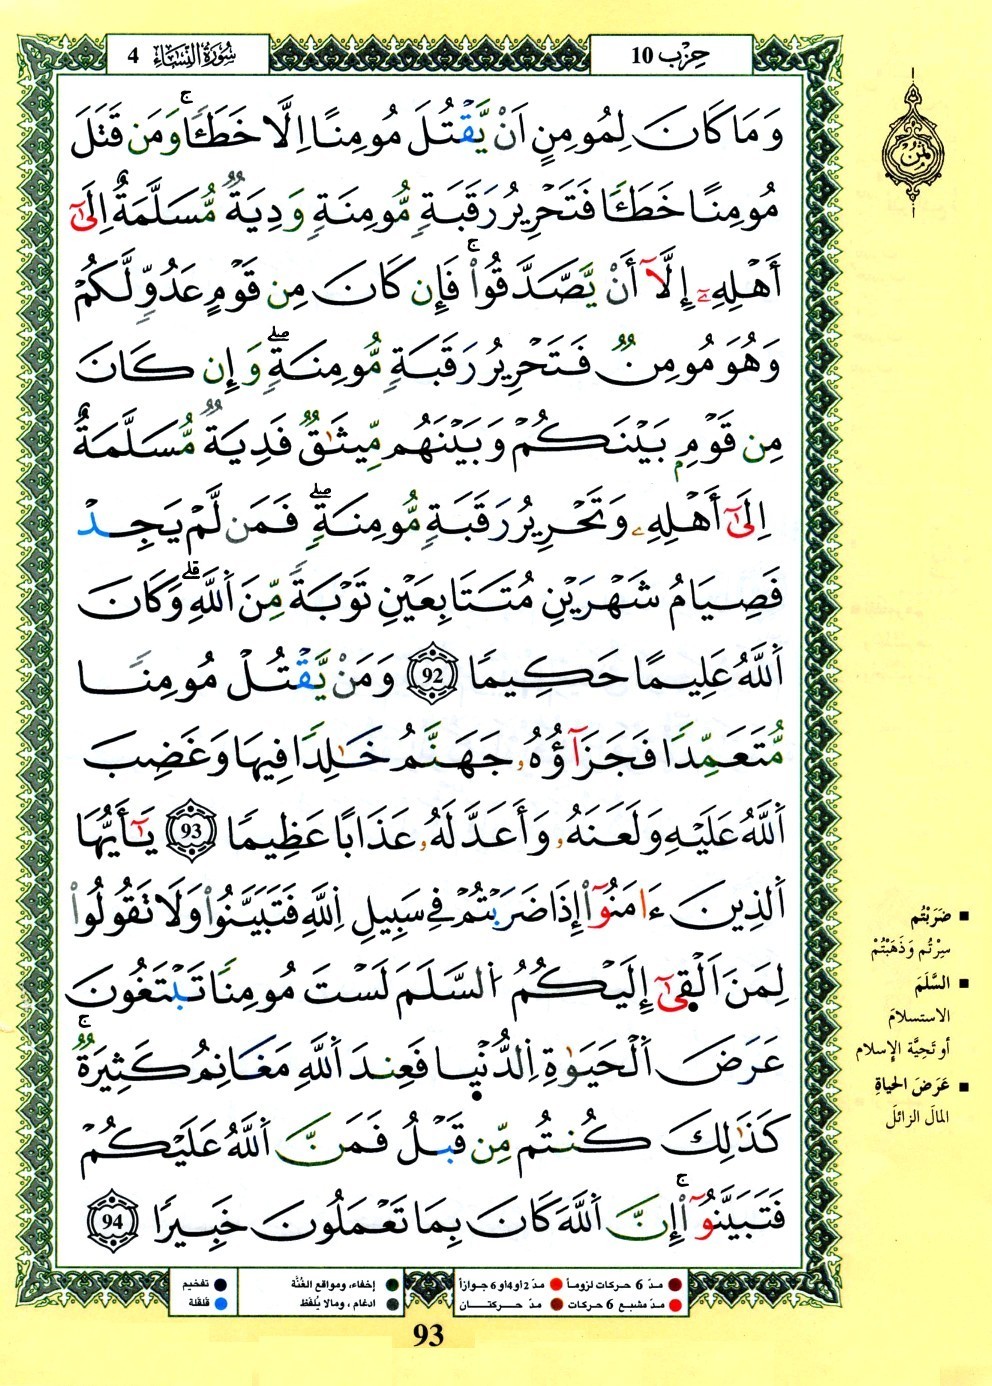 سُورَةُ النِّسَاءِ 4
حِزْب 10
ثمن
وَمَا كَانَ لِمُومِنٍ اَنْ يَّقْتُلَ مُومِنًا اِلَّا خَطَـًٔاۚ وَمَن قَتَلَ
مُومِنًا خَطَـًٔا فَتَحْرِيرُ رَقَبَةٖ مُّومِنَةٖ وَدِيَةٞ مُّسَلَّمَةٌ اِلَىٰٓ
أَهْلِهِۦٓ إِلَّآ أَنْ يَّصَّدَّقُواْۚ فَإِن كَانَ مِن قَوْمٍ عَدُوّٖ لَّكُمْ
وَهُوَ مُومِنٞ فَتَحْرِيرُ رَقَبَةٖ مُّومِنَةٖۖ وَإِن كَانَ
مِن قَوْمِۭ بَيْنَكُمْ وَبَيْنَهُم مِّيثَٰقٞ فَدِيَةٞ مُّسَلَّمَةٌ
اِلَىٰٓ أَهْلِهِۦ وَتَحْرِيرُ رَقَبَةٖ مُّومِنَةٖۖ فَمَن لَّمْ يَجِدْ
فَصِيَامُ شَهْرَيْنِ مُتَتَابِعَيْنِ تَوْبَةٗ مِّنَ اَللَّهِۗ وَكَانَ
اَللَّهُ عَلِيمًا حَكِيمًا 92 وَمَنْ يَّقْتُلْ مُومِنٗا
مُّتَعَمِّدٗا فَجَزَآؤُهُۥ جَهَنَّمُ خَٰلِدٗا فِيهَا وَغَضِبَ
اَللَّهُ عَلَيْهِ وَلَعَنَهُۥ وَأَعَدَّ لَهُۥ عَذَابًا عَظِيمًا 93 يَٰٓأَيُّهَا
اَلذِينَ ءَامَنُوٓاْ إِذَا ضَرَبْتُمْ فِي سَبِيلِ اِللَّهِ فَتَبَيَّنُواْ وَلَا تَقُولُواْ
لِمَنَ اَلْقَىٰٓ إِلَيْكُمُ اُلسَّلَمَ لَسْتَ مُومِنٗا تَبْتَغُونَ
عَرَضَ اَلْحَيَوٰةِ اِلدُّنْيَا فَعِندَ اَللَّهِ مَغَانِمُ كَثِيرَةٞۚ
كَذَٰلِكَ كُنتُم مِّن قَبْلُ فَمَنَّ اَللَّهُ عَلَيْكُمْ
فَتَبَيَّنُوٓاْۚ إِنَّ اَللَّهَ كَانَ بِمَا تَعْمَلُونَ خَبِيرٗا 94
■ ضَرَبْتُم
سِرْتُم وَذَهَبْتُمْ
■ السَّلَمَ
الاستسلامَ
أو تَحِيَّة الإسلام
■ عَرَضَ الحياةِ
المالَ الزائلَ
مدّ 6 حركات لزوماً
مدّ 2 أو 4 أو 6 جوازاً
مدّ مشبع 6 حركات
مدّ حركتان
إخفاء، ومواقع الغُنَّة
ادغام ، وما لا يُلفَظ
تفخيم
قلقلة
93